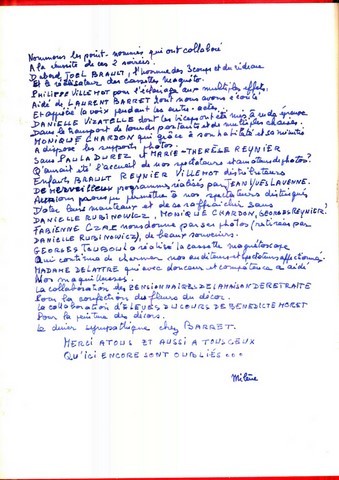 Nommons les point-nommés qui ont collaboré
A la réussite de ces 2 soirées.
D'abord JOEL BRAULT, l'homme des 3 coups et du rideau
Et le réalisateur des cassettes magnéto.
PHILIPPE VILLEMOT pour l'éclairage aux multiples effets,
Aidé de LAURENT BARRET dont nous avons écouté
Et apprécié la voix pendant les entr'-actes,
DANIELLE VIZATELLE dont les biceps ont été mis à rude épreuve
Dans le transport de lourds portants et de multiples chaises.
MONIQUE CHARDON qui grâce à son habileté et ses
A disposé les supports photos.
Sans PAULA DUREZ et MARIE-THERÈSE REYNIER
Qu'aurait été l'accueil de nos spectateurs et amateurs de photos?
Enfants BRAULT REYNIER VILLEMOT distributeurs
DE Merveilleux programmes réalisés par JEAN YVES LAVENNE.
Aurait-on pu permettre à nos spectateurs distingués
D'oter leurs manteaux et de se raffraichir sans
DANIELLE RUBINOWICZ, MONIQUE CHARDON, GEORGES REYNIER?
FABIENNE CZAE nous donne par ses photos (retirées par
DANIELLE RUBINOWICZ), de beaux souvenirs.
GEORGES TOUBOUL a réalisé la cassette magnétoscope
Qui continue de charmer nos auditeurs et spectateurs affectionnés.
MADAME DELATTRE qui avec douceur et compétence a aidé
Nos maquilleuses.
La collaboration des PENSIONNAIRES DE LA MAISON DE RETRAITE
Pour la confection des fleurs du décor.
La collaboration d'ELEVES DU COURS DE BENEDICTE MORET
Pour la peinture des décors.
Le dîner sympathique chez BARRET.
MERCI A TOUS ET AUSSI A TOUS CEUX
QU'ICI ENCORE SONT OUBLIÉS...
Milène